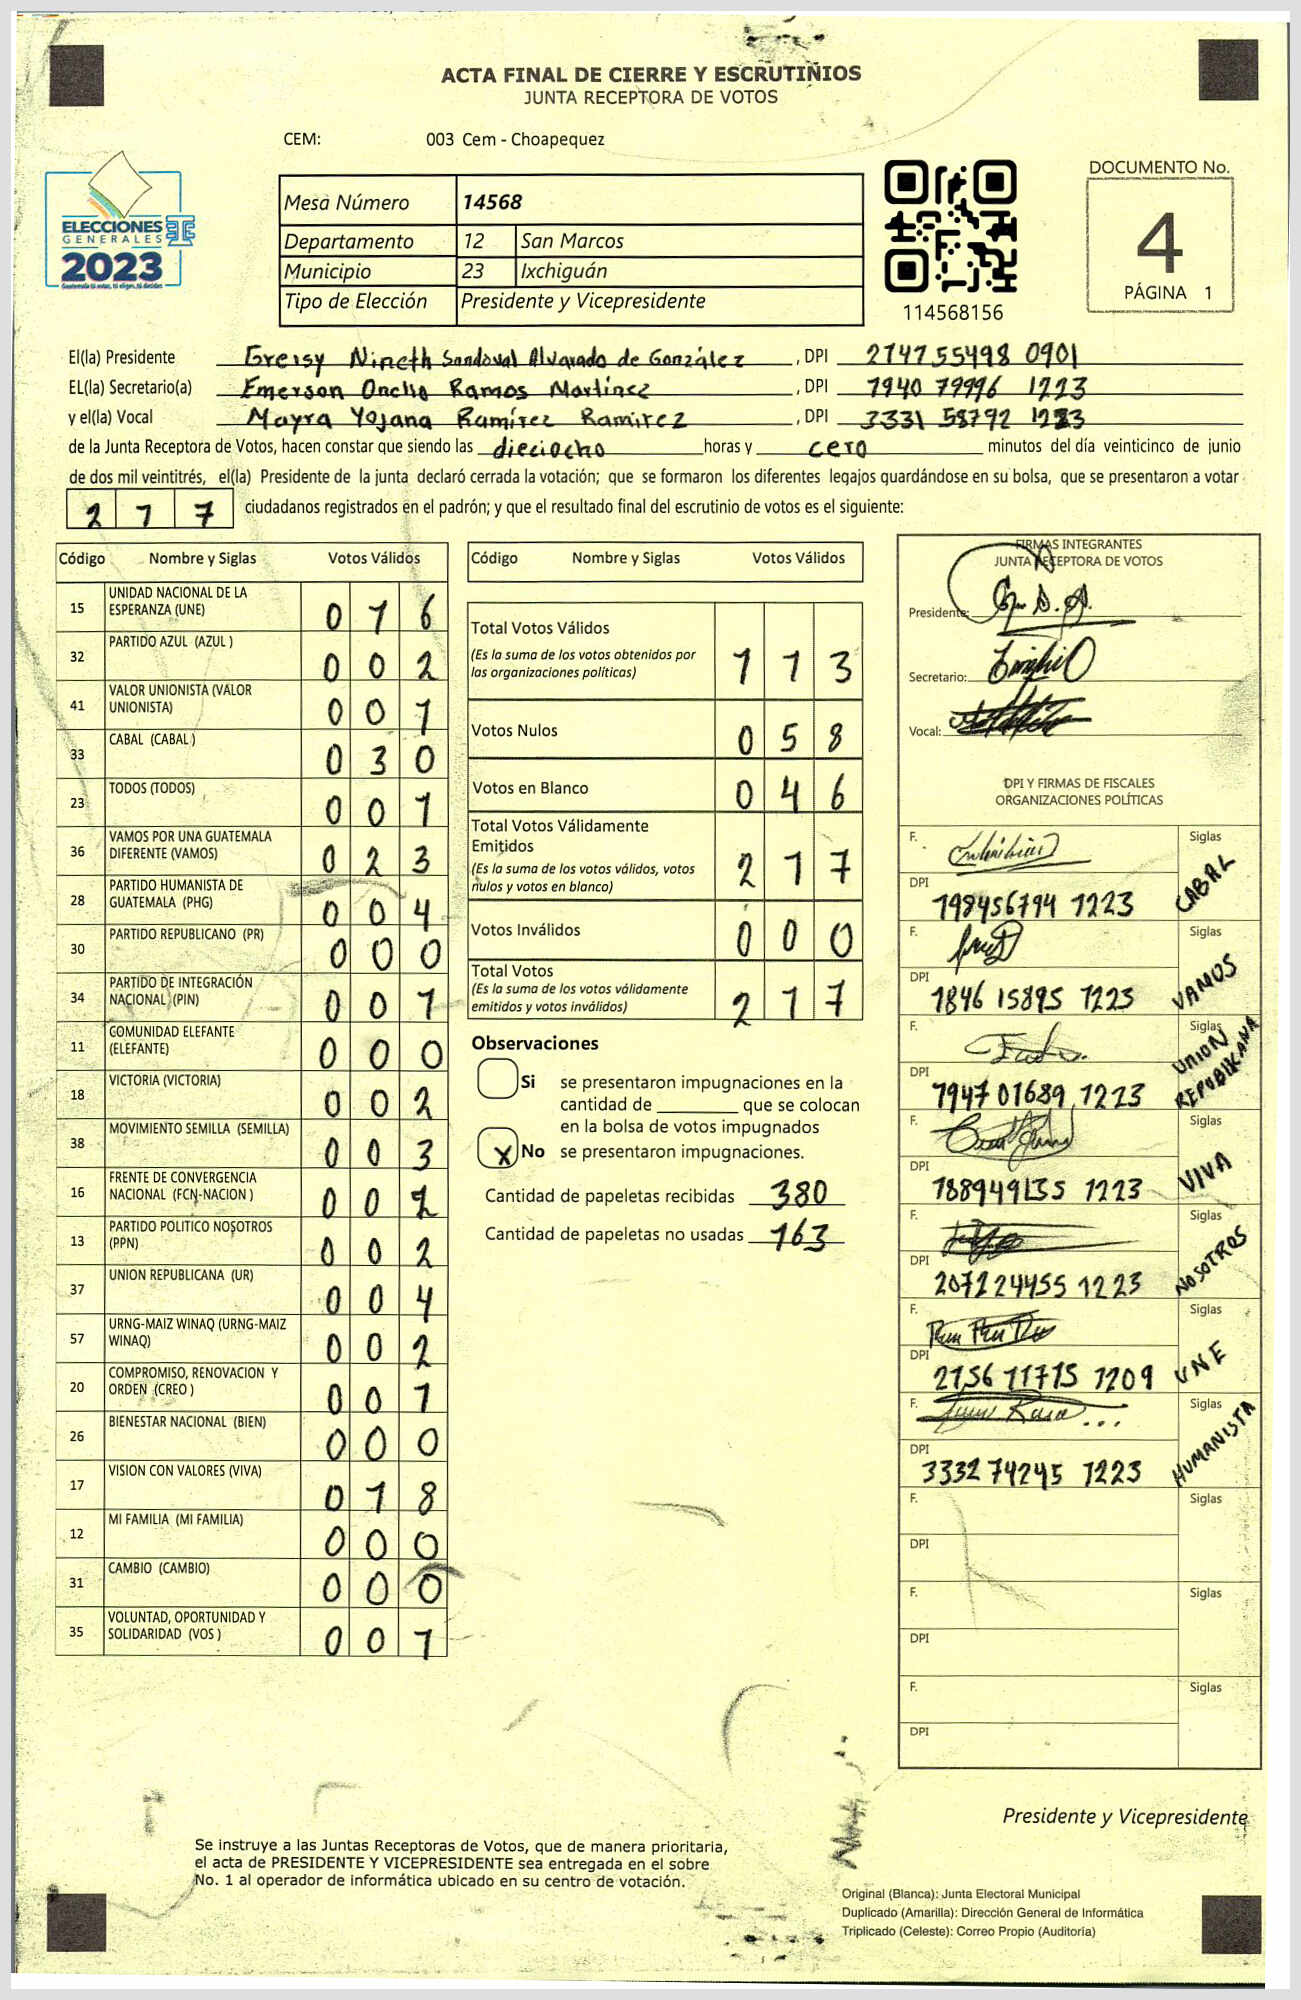 ACTA FINAL DE CIERRE Y ESCRUTINIOS
JUNTA RECEPTORA DE VOTOS
CEM: 003 Cem - Choapequez
ELECCIONES
GENERALES
2023
Guatemala tú votas, tú eliges, tú decides
Mesa Número 14568
Departamento 12 San Marcos
Municipio 23 Ixchiguán
Tipo de Elección Presidente y Vicepresidente
114568156
DOCUMENTO No.
4
PÁGINA 1
El(la) Presidente Greisy Nineth Sandoval Alvarado de González , DPI 2747 55498 0901
EL(la) Secretario(a) Emerson Oncho Ramos Martínez , DPI 1940 79996 1223
y el(la) Vocal Mayra Yojana Ramírez Ramirez , DPI 3331 58792 1223
de la Junta Receptora de Votos, hacen constar que siendo las dieciocho horas y cero minutos del día veinticinco de junio
de dos mil veintitrés, el(la) Presidente de la junta declaró cerrada la votación; que se formaron los diferentes legajos quardándose en su bolsa, que se presentaron a votar
217 ciudadanos registrados en el padrón; y que el resultado final del escrutinio de votos es el siguiente:
Código Nombre y Siglas Votos Válidos
15 UNIDAD NACIONAL DE LA ESPERANZA (UNE) 016
32 PARTIDO AZUL (AZUL ) 002
41 VALOR UNIONISTA (VALOR UNIONISTA) 001
33 CABAL (CABAL ) 030
23 TODOS (TODOS) 001
36 VAMOS POR UNA GUATEMALA DIFERENTE (VAMOS) 023
28 PARTIDO HUMANISTA DE GUATEMALA (PHG) 004
30 PARTIDO REPUBLICANO (PR) 000
34 PARTIDO DE INTEGRACIÓN NACIONAL (PIN) 001
11 COMUNIDAD ELEFANTE (ELEFANTE) 000
18 VICTORIA (VICTORIA) 002
38 MOVIMIENTO SEMILLA (SEMILLA) 003
16 FRENTE DE CONVERGENCIA NACIONAL (FCN-NACION ) 002
13 PARTIDO POLITICO NOSOTROS (PPN) 002
37 UNION REPUBLICANA (UR) 004
57 URNG-MAIZ WINAQ (URNG-MAIZ WINAQ) 002
20 COMPROMISO, RENOVACION Y ORDEN (CREO ) 001
26 BIENESTAR NACIONAL (BIEN) 000
17 VISION CON VALORES (VIVA) 018
12 MI FAMILIA (MI FAMILIA) 000
31 CAMBIO (CAMBIO) 000
35 VOLUNTAD, OPORTUNIDAD Y SOLIDARIDAD (VOS ) 001
Código Nombre y Siglas Votos Válidos
Total Votos Válidos 113
(Es la suma de los votos obtenidos por
las organizaciones políticas)
Votos Nulos 058
Votos en Blanco 046
Total Votos Válidamente
Emitidos 217
(Es la suma de los votos válidos, votos
nulos y votos en blanco)
Votos Inválidos 000
Total Votos 217
(Es la suma de los votos válidamente
emitidos y votos inválidos)
Observaciones
Si se presentaron impugnaciones en la
cantidad de ________ que se colocan
en la bolsa de votos impugnados
X No se presentaron impugnaciones.
Cantidad de papeletas recibidas 380
Cantidad de papeletas no usadas 163
FIRMAS INTEGRANTES
JUNTA RECEPTORA DE VOTOS
Presidente:
Secretario:
Vocal:
DPI Y FIRMAS DE FISCALES
ORGANIZACIONES POLÍTICAS
F. Siglas CABAL
DPI 198456794 1223
F. Siglas VAMOS
DPI 1846 15895 1223
F. Siglas UNION REPUBIKANA
DPI 1947 01689 1223
F. Siglas VIVA
DPI 188949135 1223
F. Siglas NOSOTROS
DPI 207224455 1223
F. Siglas UNE
DPI 2156 11715 1209
F. Siglas HUMANISTA
DPI 3332 74245 1223
F. Siglas
DPI
F. Siglas
DPI
F. Siglas
DPI
Presidente y Vicepresidente
Se instruye a las Juntas Receptoras de Votos, que de manera prioritaria,
el acta de PRESIDENTE Y VICEPRESIDENTE sea entregada en el sobre
No. 1 al operador de informática ubicado en su centro de votación.
Original (Blanca): Junta Electoral Municipal
Duplicado (Amarilla): Dirección General de Informática
Triplicado (Celeste): Correo Propio (Auditoría)